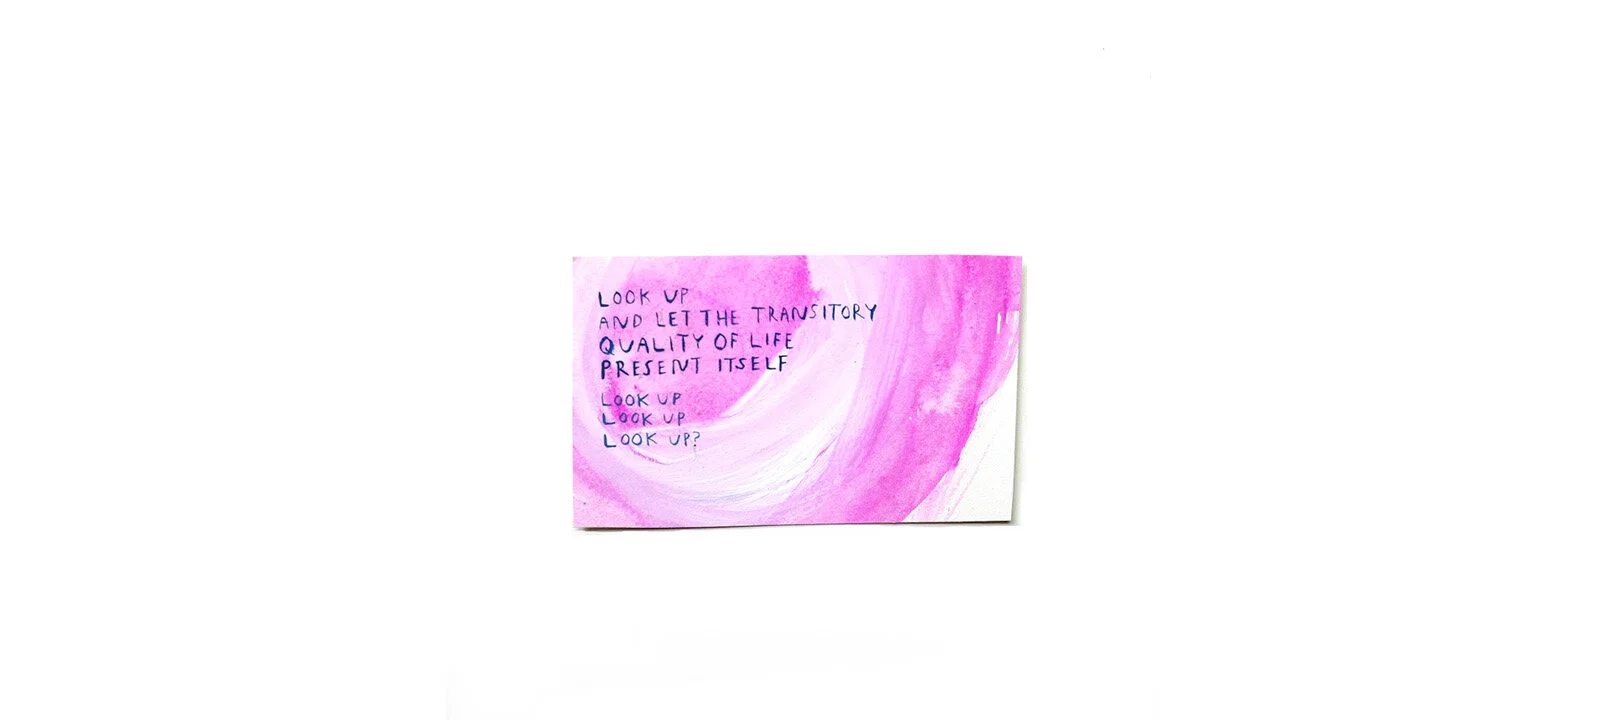 LOOK UP
AND LET THE TRANSITORY
QUALITY OF LIFE
PRESENT ITSELF
LOOK UP
LOOK UP
LOOK UP?